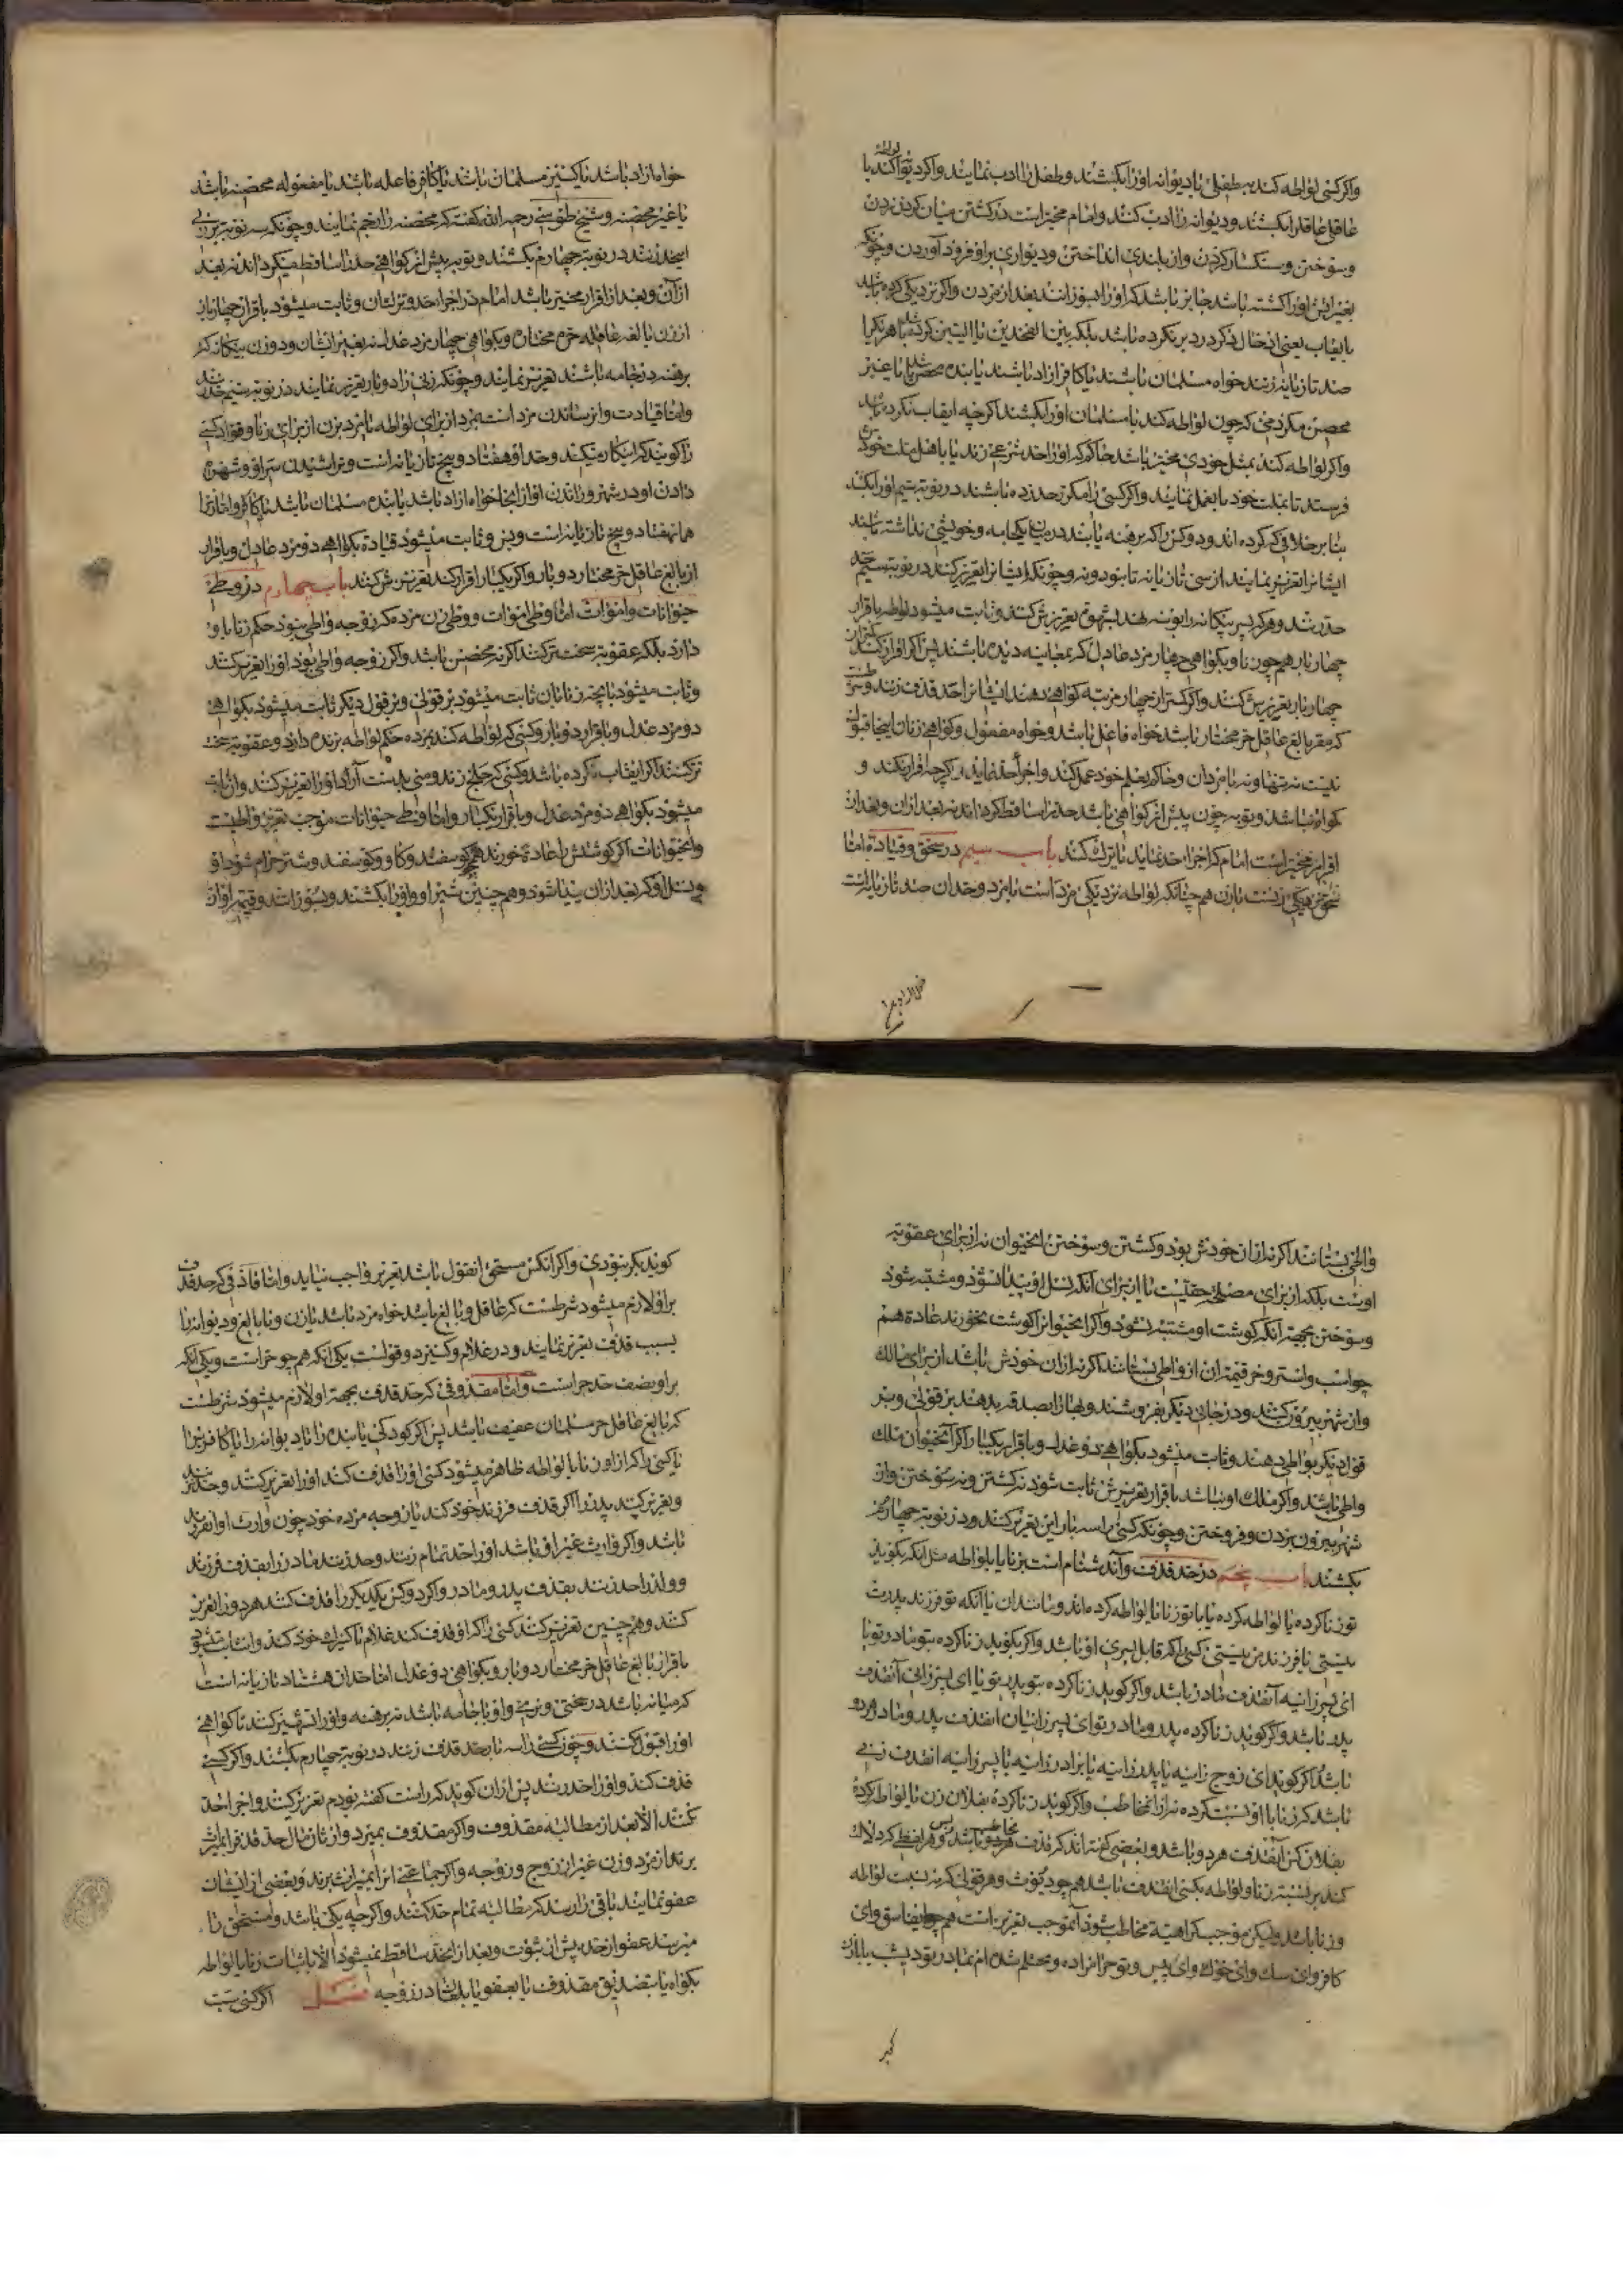 واکر کسی لواطه کند بطفلی یا دیوانه اورا بکشند و طفل را ادب نمایند واکر دیوانه لواطه کند با
عاقلی عاقلرا بکشند و دیوانه را ادب کنند وامام مخیر است در کشتن میان کردن زدن
و سوختن و سنکسار کردن واز بلندی انداختن و دیواری براو فرود آوردن و چونکه
بغیر اتش اورا کشته باشد جایز باشد که اورا بسوزانند بعد از مردن واکر نزدیکی کرده باشد
با یقاب یعنی ادخال ذکر در دبر نکرده باشد بلکه بین الفخدین یا الیتین کرده باشد هر یکرا
صد تازیانه بزنند خواه مسلمان باشند یا کافر ازاد باشند یا بنده محصن باشد یا غیر
محصن مکر ذمی که چون لواطه کند با مسلمان اورا بکشند اکرچه ایقاب نکرده باشد
واکر لواطه کند بمثل خودی مخیر باشد حاکم که اورا حد شرعی زند یا باهل ملت خودش
فرستد تا بملت خود با او عمل نمایند واکر کسی را مکرر حد زده باشند در نوبه سیم اورا بکشند
بنابر خلافی که کرده اند و دو کس را که برهنه یابند در میان یکجامه و خویشی نداشته باشند
ایشانرا تعزیر نمایند از سی تازیانه تا بنود و نه و چونکه ایشانرا تعزیر کنند در نوبه سیم حد
حد زنند و هر که پسر بیکانه را بوسه دهد بشهوة تعزیرش کنند و ثابت میشود لواطه باقرار
چهار بار همچون زنا و بکواهی چهار مرد عادل که بمعاینه دیده باشند پس اکر اقرار کند کمتر از
چهار بار تعزیرش کنند واکر کمتر از چهار مرتبه کواهی دهند ایشانرا حد قذف زنند و شرطست
که مقر بالغ عاقل حر مختار باشد خواه فاعل باشد و خواه مفعول و کواهی زنان اینجا قبول
نیست نه تنها و نه با مردان و حاکم بعلم خود عمل کند واجراء حد نماید اکرچه اقرار نکند و
کواه نباشد و توبه چون پیش از کواهی باشد حد را ساقط کرداند نه بعد از ان و بعد از
اقرار مخیر است امام که اجراء حد نماید یا ترک کند باب سیم در سحق و قیادة اما
سحق نزدیکی زنست با زن هم چنانکه لواطه نزدیکی مرد است با مرد و حد ان صد تازیانه است
خواه ازاد باشد یا کنیز مسلمان باشد یا کافر فاعله باشد یا مفعوله محصنه باشد
یا غیر محصنه و شیخ طوسی رحمه الله کفته که محصنه را رجم نمایند و چونکه سه نوبه برزنی
اینحد زنند در نوبه چهارم بکشند و توبه پیش از کواهی حد را ساقط میکرداند نه بعد
از آن و بعد از اقرار مخیر باشد امام در اجراء حد و ترک ان و ثابت میشود باقرار چهار بار
از زن بالغه عاقله حره مختاره و بکواهی چهار مرد عدل نه بغیر ایشان و دو زن بیکانه که
برهنه در جامه باشند تعزیر نمایند و چونکه زنی را دو بار تعزیر نمایند در نوبه سیم حد زنند
واما قیادت وان رساندن مرد است بمرد از برای لواطه یا مرد بزن از برای زنا و قواد کسی
را کویند که اینکار میکند و حد او هفتاد و پنج تازیانه است و تراشیدن سر او و شهره
دادن او در شهر و راندن او از انجا خواه ازاد باشد یا بنده مسلمان باشد یا کافر واما زنرا
همان هفتاد و پنج تازیانه است و بس و ثابت میشود قیادة بکواهی دو مرد عادل و باقرار
از بالغ عاقل حر مختار دو بار واکر یکبار اقرار کند تعزیرش کنند باب چهارم در وطی
حیوانات واموات اما وطی اموات و وطی زن مرده که زوجه واطی نبود حکم زنا با او
دارد بلکه عقوبة سخت تر کنند اکرنه محصن باشد واکر زوجه واطی بود اورا تعزیر کنند
و ثابت میشود بانچه زنا بان ثابت میشود بر قولی و بر قول دیکر ثابت میشود بکواهی
دو مرد عدل و باقرار دو بار و کسی که لواطه کند بمرده حکم لواطه بزنده دارد و عقوبة سخت
تر کنند اکر ایقاب نکرده باشد و کسی که جلخ زند و منی بدست آرد اورا تعزیر کنند وان ثابت
میشود بکواهی دو مرد عدل و باقرار یکبار واما وطی حیوانات موجب تعزیر واطیست
وانحیوانات اکر کوشتش را عادة خورند همچو کوسفند و کاو کوسفند و شتر حرام شود او
و نسل او که بعد از ان پیدا شود و هم چنین شیر او و اورا بکشند و بسوزانند و قیمة او از
واطی بستانند اکر نه از ان خودش بود و کشتن و سوختن انحیوان نه از برای عقوبة
اوست بلکه از برای مصلحة حقیست یا از برای آنکه نسل او پیدا نشود و مشتبه نشود
و سوختن بجهة آنکه کوشت او مشتبه نشود واکر انحیوانرا کوشت نخورند عادة هم
چو اسب واستر و خر قیمة ان از واطی بستانند اکر نه از ان خودش باشد از برای مالک
وان شهر بیرون کنند و در جای دیکر بفروشند و بها را بصدقه بدهند بر قولی و بر
قول دیکر بواطی دهند و ثابت میشود بکواهی دو عدل و باقرار یکبار اکر آنحیوان ملک
واطی باشد واکر ملک او نباشد باقرار تعزیرش ثابت شود نه کشتن و نه سوختن واز
شهر بیرون بردن و فروختن و چونکه کسی را سه بار این تعزیر کنند و در نوبه چهارم
بکشند باب پنجم در حد قذف وآن دشنام است بزنا یا بلواطه مثل آنکه بکوید
تو زنا کرده یا لواطه کرده یا با تو زنا یا لواطه کرده اند و مانند ان یا آنکه تو فرزند پدرت
نیستی یا فرزند من نیستی کسی را که قابل پسری او باشد واکر بکوید زنا کرده بتو مادر تو یا
ای پسر زانیه آنقذف مادر باشد واکر کوید زنا کرده بتو پدر تو یا ای پسر زانی آنقذف
پدر باشد واکر کوید زنا کرده پدر و مادر تو ای پسر زانیان انقذف پدر و مادر هر دو
باشد اکر کوید ای زوج زانیه یا پدر زانیه یا برادر زانیه یا پسر زانیه انقذف زنی
باشد که زنا با او نسبت کرده نه از ان مخاطب واکر کوید زنا کردۀ بفلان زن یا لواطه کردۀ
بفلان کس آنقذف هر دو باشد و بعضی کفته اند که قذف مخاطب باشد و بس و هر لفظی که دلالت
کند بر نسبة زنا و لواطه بکسی انقذف باشد همچو دیوث و هر قولی که نه نسبت لواطه
و زنا باشد ولیکن موجب کراهیة مخاطب شود آنموجب تعزیر است هم چو ای فاسق وای
کافر وای سک وای خوک وای پیس و تو حرامزاده و محتلم شده ام بمادر تو دیشب یا بانک
کوید بکر نبودی واکر انکس مستحق انقول باشد تعزیر واجب نیاید واما قاذفی که حد قذف
براو لازم میشود شرطست که عاقل و بالغ باشد خواه مرد باشد یا زن و نابالغ و دیوانه را
بسبب قذف تعزیر نمایند و در غلام و کنیز دو قولست یکی آنکه هم چو حر است و یکی آنکه
براو نصف حد حر است واما مقذوفی که حد قذف بجهة او لازم میشود شرطست
که بالغ عاقل حر مسلمان عفیف باشد پس اکر کودکی یا بنده را یا دیوانه را یا کافریرا
یا کسی را که از او زنا یا لواطه ظاهر میشود کسی اورا قذف کند اورا تعزیر کنند و حد نزنند
و تعزیر کنند پدر را اکر قذف فرزند خود کند یا زوجه مرده خود چون وارث او انفرزند
باشد واکر وارث غیر او باشد اورا حد تمام زنند و حد زنند مادر را بقذف فرزند
و ولد را حد زنند بقذف پدر و مادر واکر دو کس یکدیکر را قذف کنند هر دو را تعزیر
کنند و هم چنین تعزیر کنند کسی را که او قذف کند غلام یا کنیزک خود کند وان ثابت میشود
باقرار بالغ عاقل حر مختار دو بار و بکواهی دو عدل اما حد ان هشتاد تازیانه است
که میانه باشد در سختی و نرمی واو با جامه باشد نه برهنه واورا تشهیر کنند تا کواهی
اورا قبول نکنند و چون کسی را سه بار حد قذف زنند در نوبه چهارم بکشند واکر کسی
قذف کند واورا حد زنند پس از ان کوید که راست کفته بودم تعزیر کنند واجراء حد
نکنند الا بعد از مطالبه مقذوف واکر مقذوف بمیرد وارثان مال حد قذف را میراث
برند از مرد و زن غیر از زوج و زوجه واکر جماعتی انرا بمیراث برند و بعضی از ایشان
عفو نمایند باقی را رسد که مطالبه تمام حد کنند واکرچه یکی باشد و مستحق را
میرسد عفو از حد پیش از ثبوت و بعد از ان حد ساقط نمیشود الا باثبات زنا یا لواطه
بکواه یا بتصدیق مقذوف یا بعفو یا بلعان در زوجه فصل اکر کسی سب